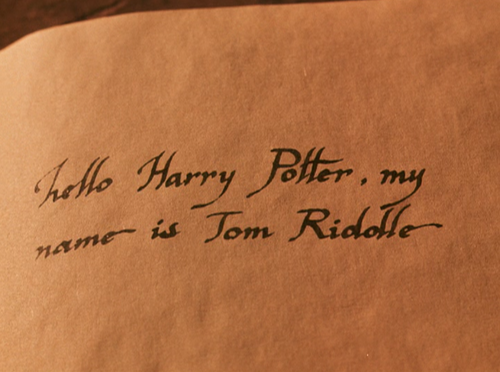 hello Harry Potter, my
name is Tom Riddle